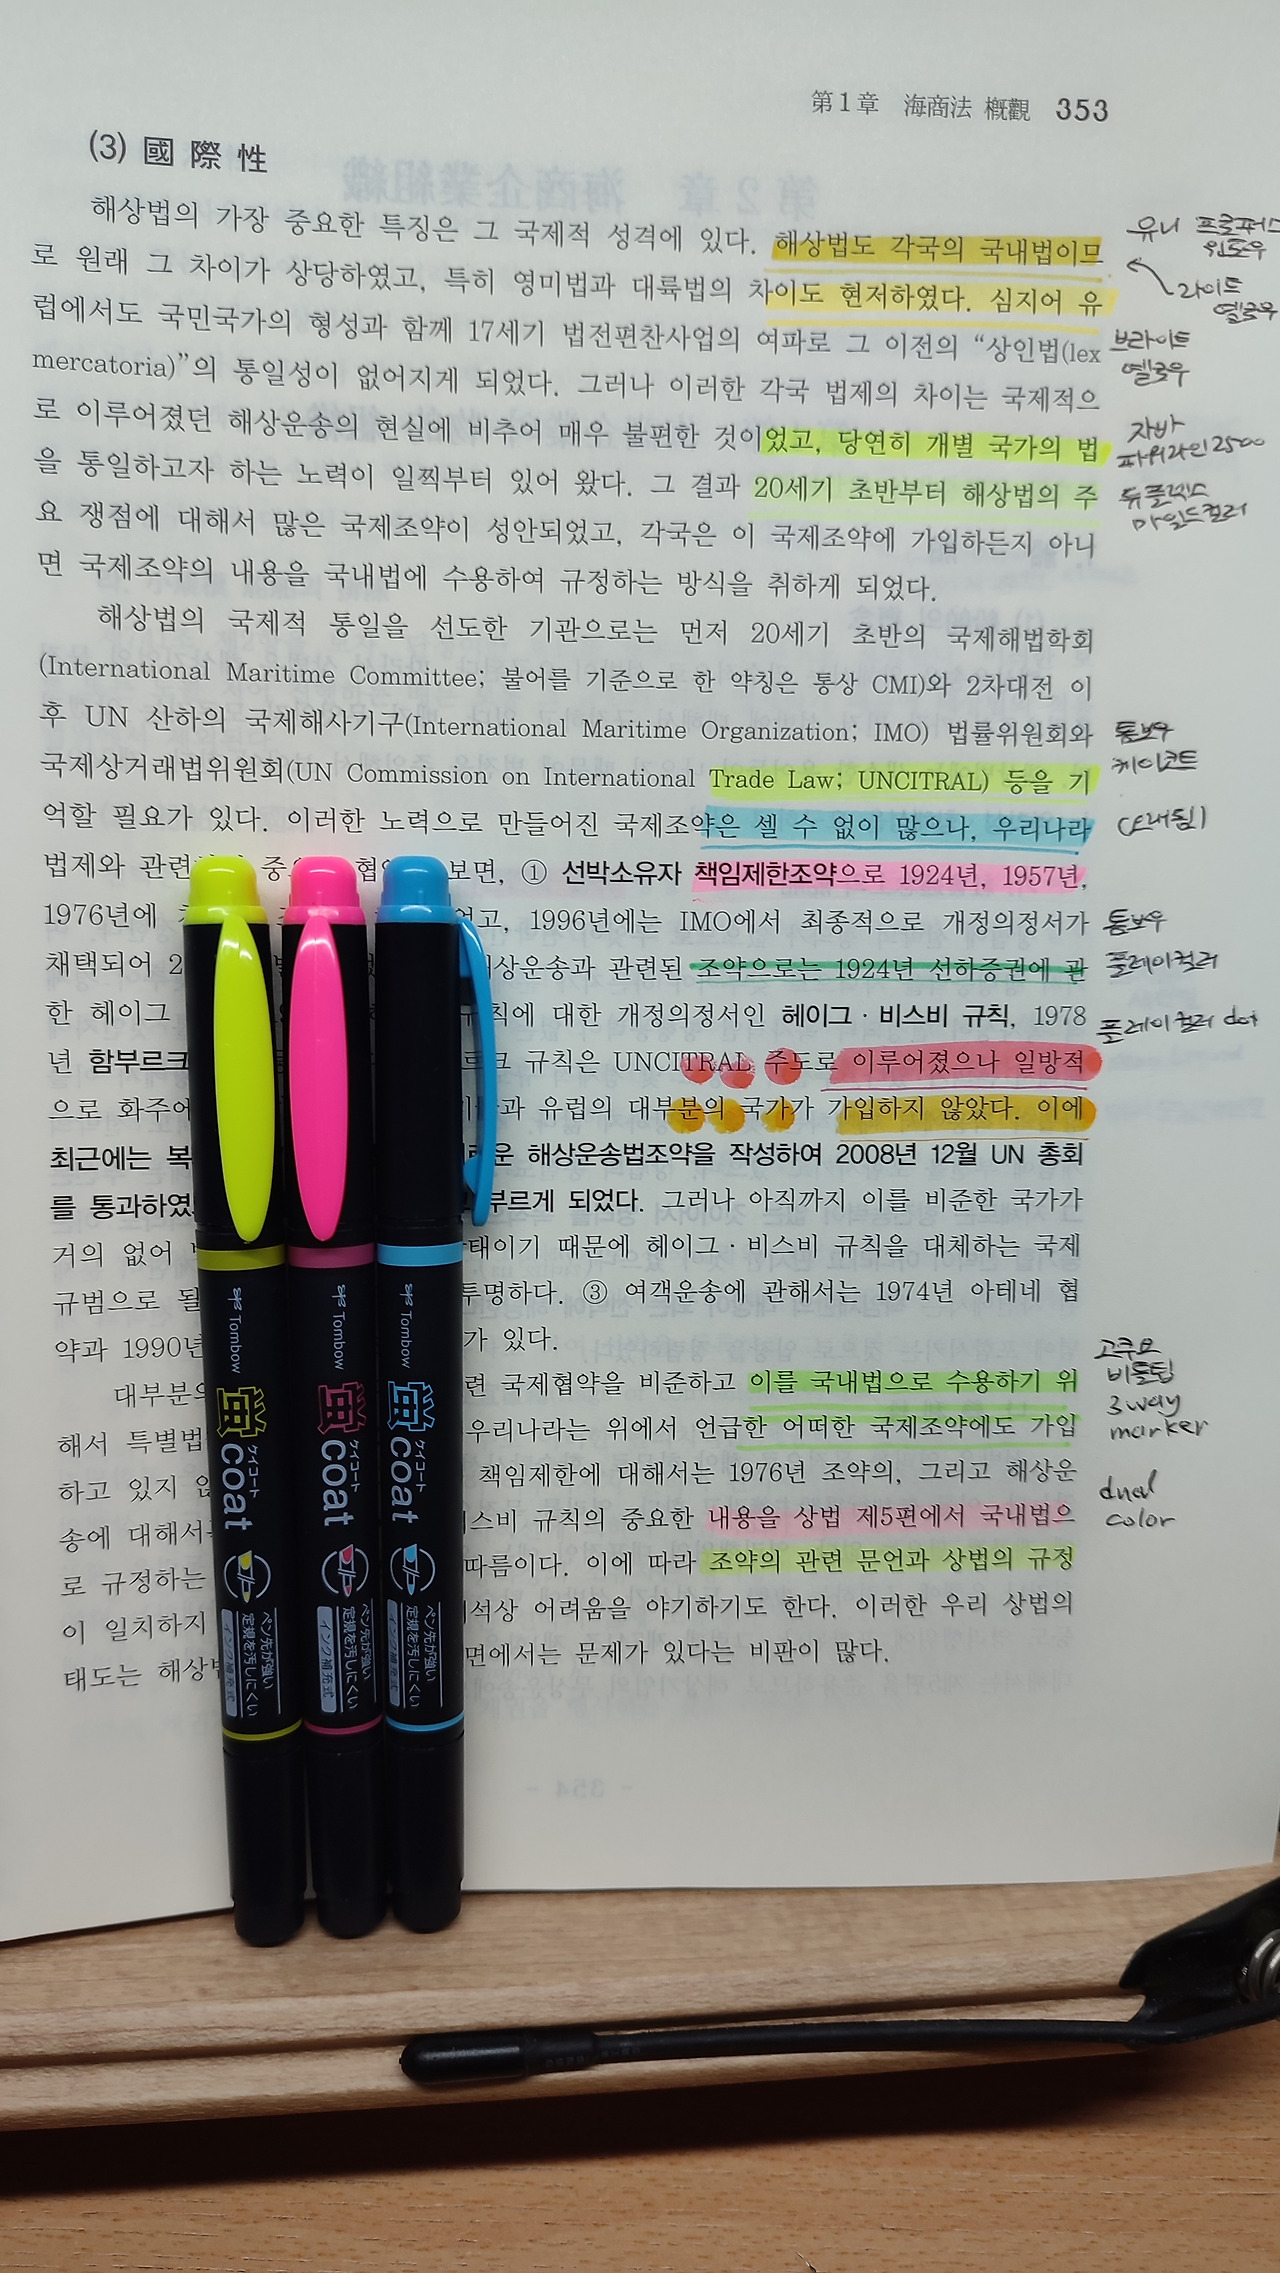 第1章 海商法 槪觀 353
(3) 國際性
해상법의 가장 중요한 특징은 그 국제적 성격에 있다. 해상법도 각국의 국내법이므
로 원래 그 차이가 상당하였고, 특히 영미법과 대륙법의 차이도 현저하였다. 심지어 유
럽에서도 국민국가의 형성과 함께 17세기 법전편찬사업의 여파로 그 이전의 “상인법(lex
mercatoria)”의 통일성이 없어지게 되었다. 그러나 이러한 각국 법제의 차이는 국제적으
로 이루어졌던 해상운송의 현실에 비추어 매우 불편한 것이었고, 당연히 개별 국가의 법
을 통일하고자 하는 노력이 일찍부터 있어 왔다. 그 결과 20세기 초반부터 해상법의 주
요 쟁점에 대해서 많은 국제조약이 성안되었고, 각국은 이 국제조약에 가입하든지 아니
면 국제조약의 내용을 국내법에 수용하여 규정하는 방식을 취하게 되었다.
해상법의 국제적 통일을 선도한 기관으로는 먼저 20세기 초반의 국제해법학회
(International Maritime Committee; 불어를 기준으로 한 약칭은 통상 CMI)와 2차대전 이
후 UN 산하의 국제해사기구(International Maritime Organization; IMO) 법률위원회와
국제상거래법위원회(UN Commission on International Trade Law; UNCITRAL) 등을 기
억할 필요가 있다. 이러한 노력으로 만들어진 국제조약은 셀 수 없이 많으나, 우리나라
법제와 관련 보면, ① 선박소유자 책임제한조약으로 1924년, 1957년,
1976년에 었고, 1996년에는 IMO에서 최종적으로 개정의정서가
채택되어 2 해상운송과 관련된 조약으로는 1924년 선하증권에 관
한 헤이그 규칙에 대한 개정의정서인 헤이그·비스비 규칙, 1978
년 함부르크 르크 규칙은 UNCITRAL 주도로 이루어졌으나 일방적
으로 화주에 과 유럽의 대부분의 국가가 가입하지 않았다. 이에
최근에는 복 운 해상운송법조약을 작성하여 2008년 12월 UN 총회
를 통과하였 부르게 되었다. 그러나 아직까지 이를 비준한 국가가
거의 없어 태이기 때문에 헤이그·비스비 규칙을 대체하는 국제
규범으로 될 투명하다. ③ 여객운송에 관해서는 1974년 아테네 협
약과 1990년 가 있다.
대부분의 련 국제협약을 비준하고 이를 국내법으로 수용하기 위
해서 특별법 우리나라는 위에서 언급한 어떠한 국제조약에도 가입
하고 있지 않 책임제한에 대해서는 1976년 조약의, 그리고 해상운
송에 대해서 스비 규칙의 중요한 내용을 상법 제5편에서 국내법으
로 규정하는 따름이다. 이에 따라 조약의 관련 문언과 상법의 규정
이 일치하지 석상 어려움을 야기하기도 한다. 이러한 우리 상법의
태도는 해상법 면에서는 문제가 있다는 비판이 많다.
유니 프로퍼스
윈도우
라이트
옐로우
브라이트
옐로우
자바
파워라인 2500
듀플렉스
마일드컬러
톰보우
케이코트
(오래됨)
톰보우
플레이컬러
플레이컬러 dot
고쿠요
비틀팁
3way
marker
dual
color
Tombow
蛍coat
ケイコート
ペン先が強い
定規を汚しにくい
インク補充式
Tombow
蛍coat
ケイコート
ペン先が強い
定規を汚しにくい
インク補充式
Tombow
蛍coat
ケイコート
ペン先が強い
定規を汚しにくい
インク補充式